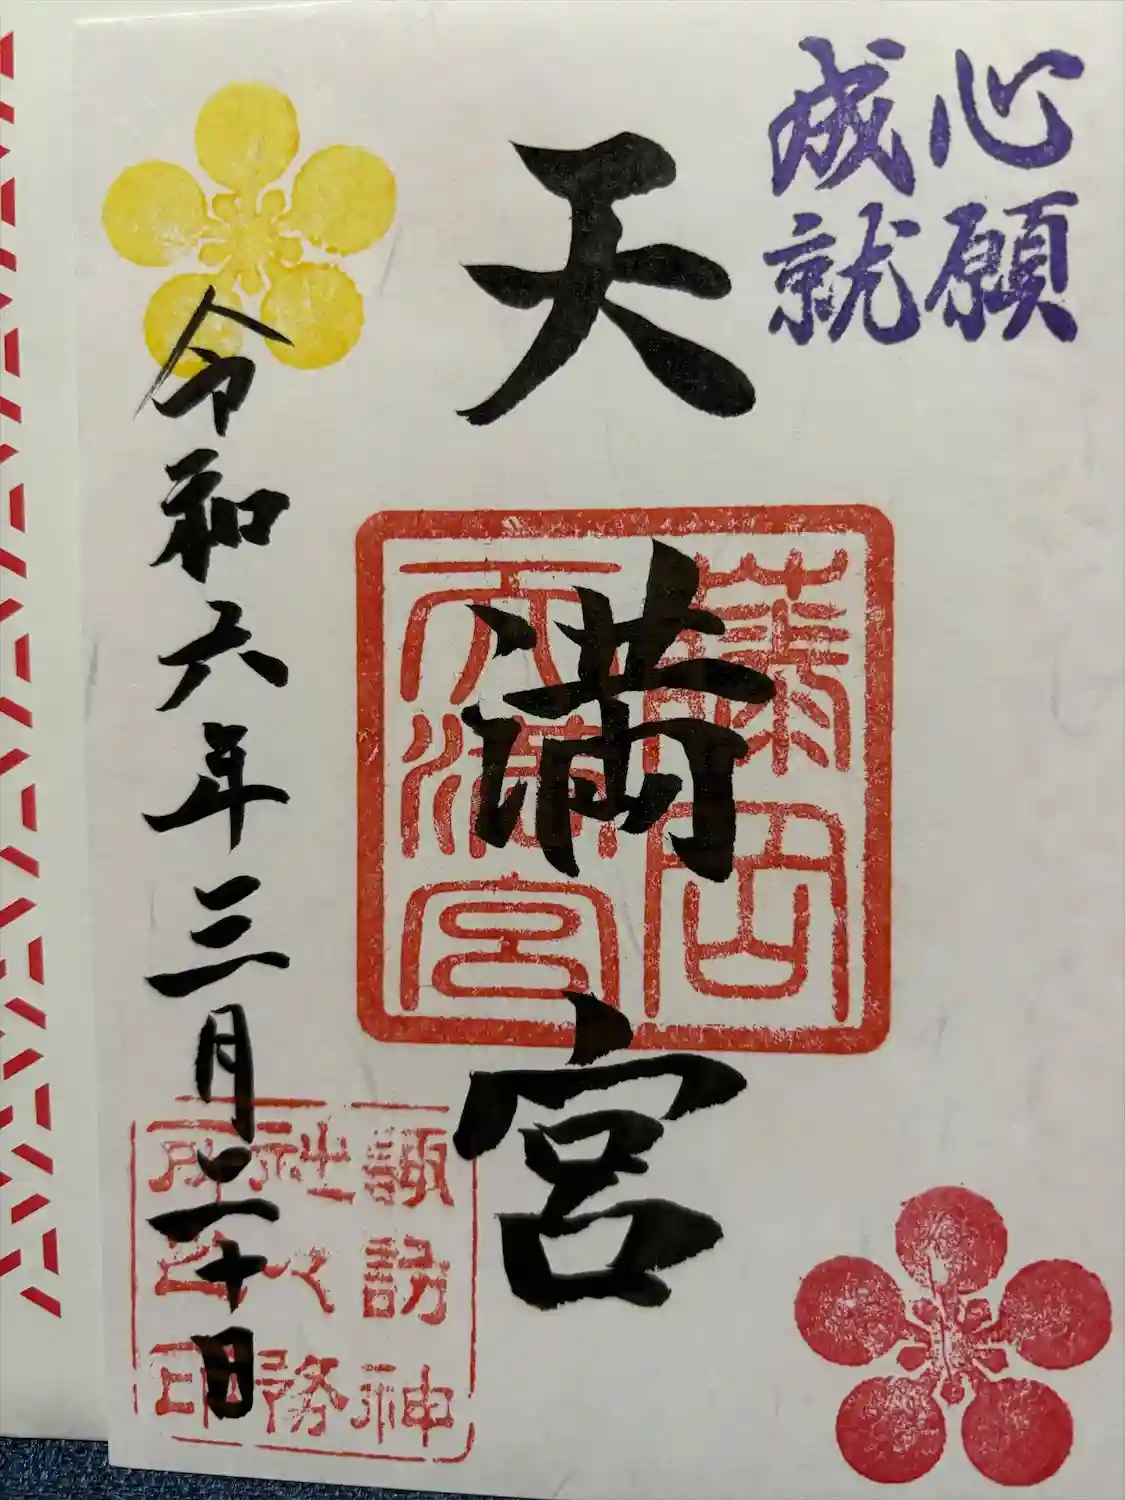 心願
成就
天満宮
藤岡
天満宮
令和六年三月二十日
諏訪神
社々務
所之印